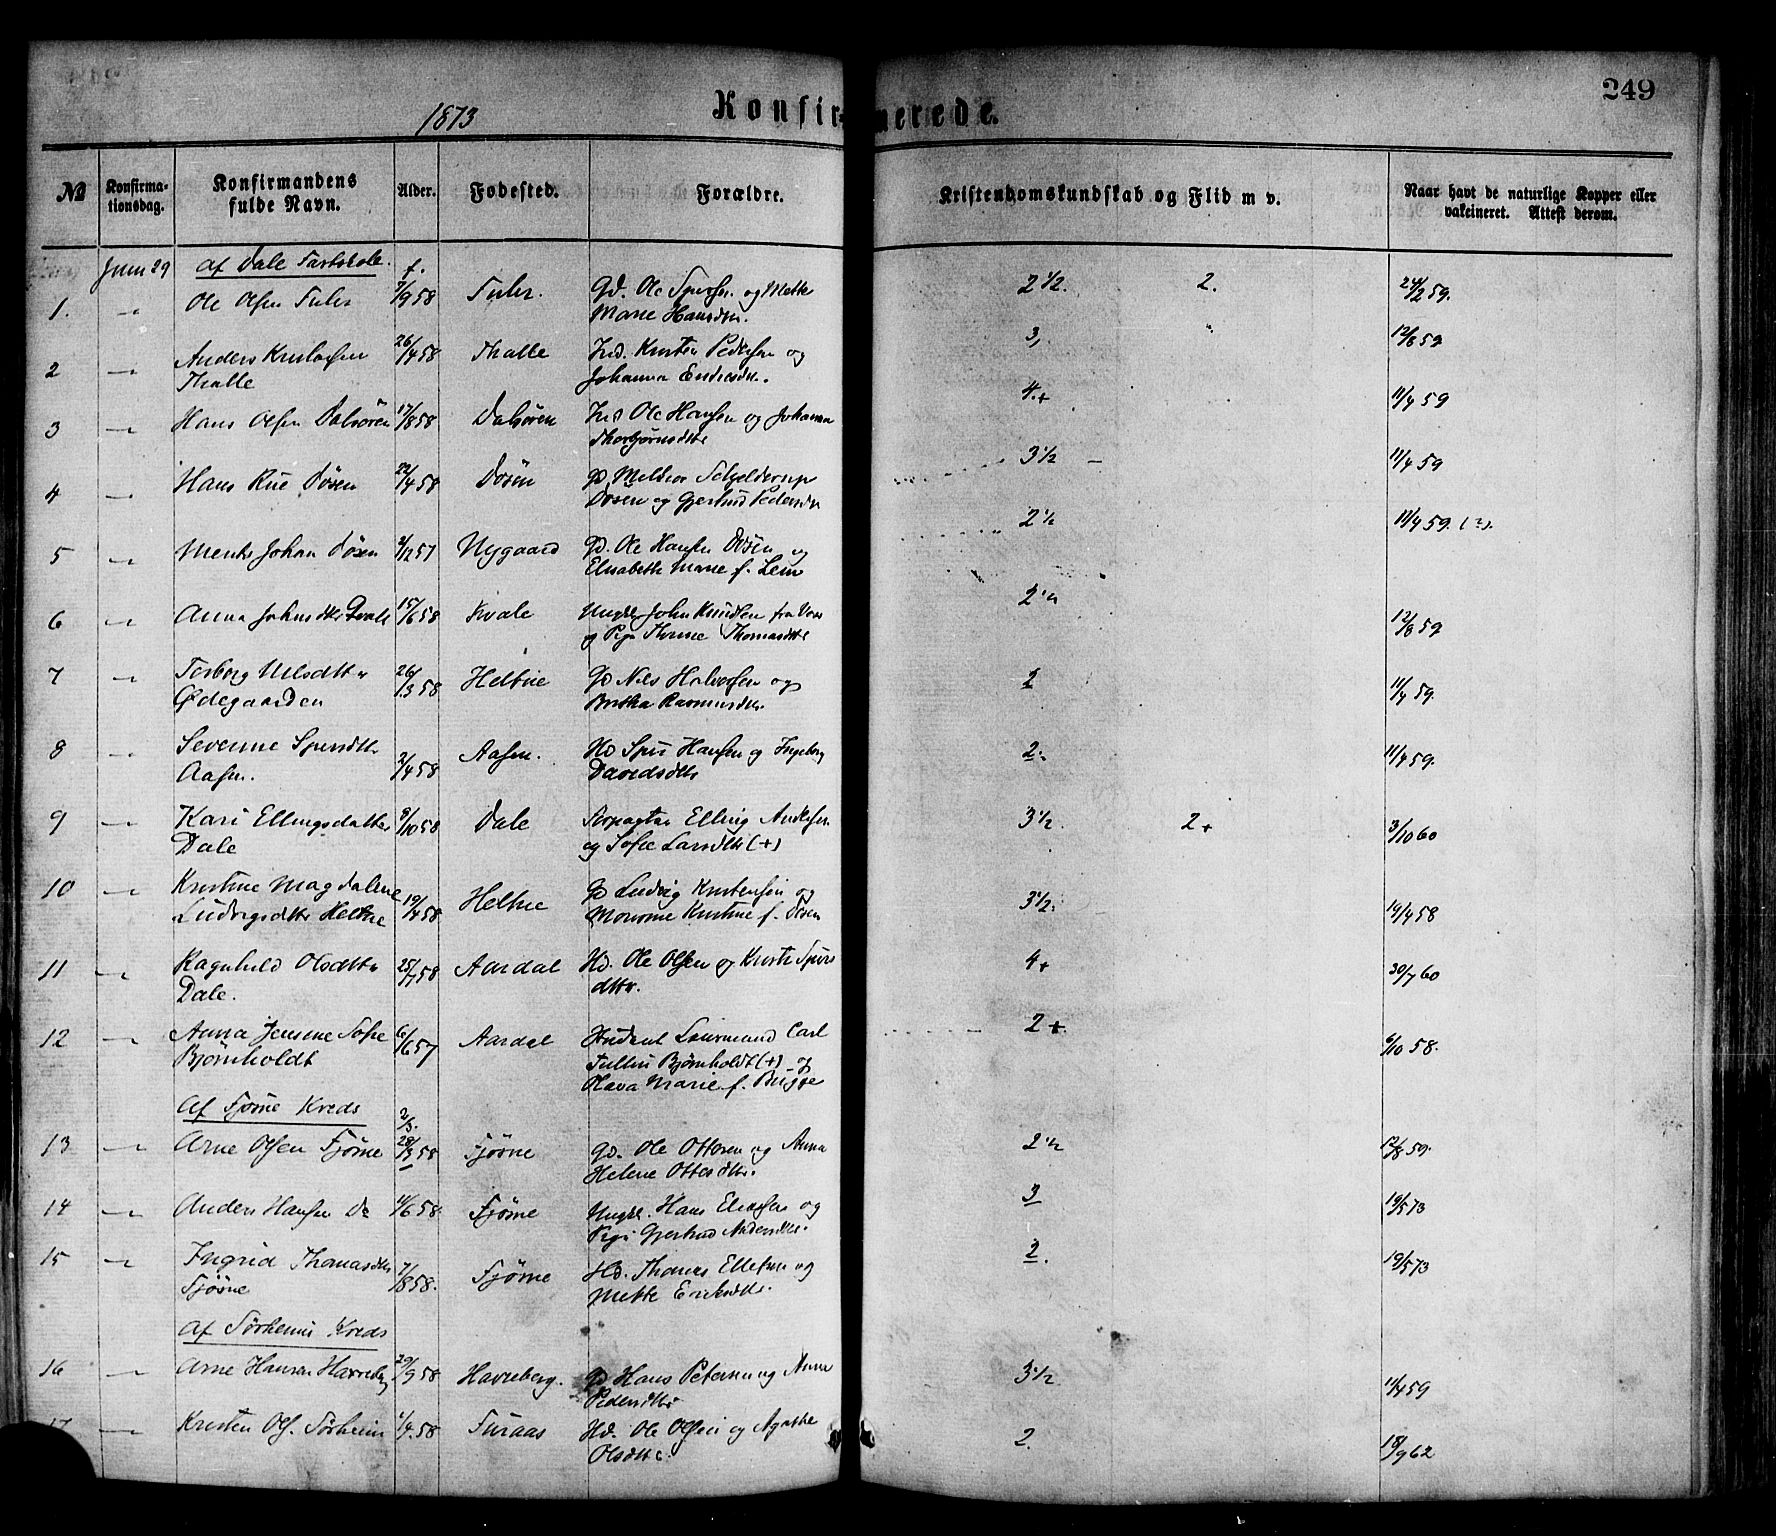 249
1873
Konfirmerede.
№ Konfirmationsdag. Konfirmandens fulde Navn. Alder. Fødested. Forældre. Kristendomskundskab og Flid m v. Naar havt de naturlige Kopper eller vakcineret. Attest derom.
Juni 29 Af Dale f.
1. Ole Olsen 7/9 58 Gd. Ole og Mette 2 1/2. 2. 24/2 59.
Marie Hansdtr.
2 Anders 26/4 58 Thalle Ind. Kristen Pedersen og 3, " 12/8 59
Thalle Johanna Endresdtr.
3 Hans Olsen Dalsøren 17/8 58 Dalsøren Ind Ole Hansen og Johanna 4.+ 11/4 59
Thorbjørnsdtr
4 Hans Rue Døsen 22/4 58 Døsen Gd. Meltior Schjelderup 3 1/2 11/4 59
Døsen og Gjertrud Pedersdtr
5 Ments Johan Døsen 2/12 57 Nygaard Gd. Ole Hansen Døsen og 2 1/2 11/4 59. (?).
Elisabeth Marie f. Lem
6 Anna Johnsdtr Kvale 15/6 58 Kvale Ungkl John Knudsen fra Vos 2 1/2 12/8 59
og Pige Thomasdtr
7 Torborg Nilsdttr 26/3 58 Heltne Gd Nils Halvorsen og 2 11/4 59.
Ødegaarden Britha Rasmusdtr.
8 Severine Spirsdttr 2/4 58 Aasen. Hd Spir Hansen og Ingeborg 2. 11/4 59.
Aasen. Davidsdtr
9 Kari Ellingsdatter 8/10 58 Dale Forpagter Elling Andersen 3 1/2. 2+ 3/10 60
Dale og Sofie Larsdtr (+)
10 Kristine Magdalene 19/4 58 Heltne Gd Ludvig Kristensen og 3 1/2. 19/4 58
Ludvigsdtr Heltne Kristine f. Døsen
11 Ragnhild Olsdttr 25/7 58 Aardal Hd. Ole Olsen og Kirsti Spirs 4+ 30/7 60
Dale. dttr.
12 Anna Jensine Sofie 6/6 57 Aardal Student Carl 2+ 6/10 58.
Bjørnholdt Tullin Bjørnholdt (+) og
Olava Marie f. Bugge
Af Fjøsne Kreds 2/3.
13 Arne Olsen Fjøsne 28/3 58 Fjøsne Gd. Ole Ottesen og Anna 2 1/2 12/8 59.
Helene Ottesdtr.
14 Anders Hansen Do 4/6 58. Fjøsne Ungkl. Hans og 3 19/5 73
Pige Gjertrud Andersdtr.
15 Ingrid Thomasdtr 7/8 58. Fjøsne Hd. Thomas Ellefsen og 2. 19/5 73
Fjøsne Mette Eriksdtr.
Af Sørheim Kreds
16 Arne Hansen 29/9 58 Havreberg. Gd Hans Petersen og Anna 3 1/2 11/4 59
Pedersdtr
17 Kristen Ols. Sørheim 1/4. 58 Furaas Hd. Ole Olsen og Agathe 2. 18/9 62
Olsdttr.